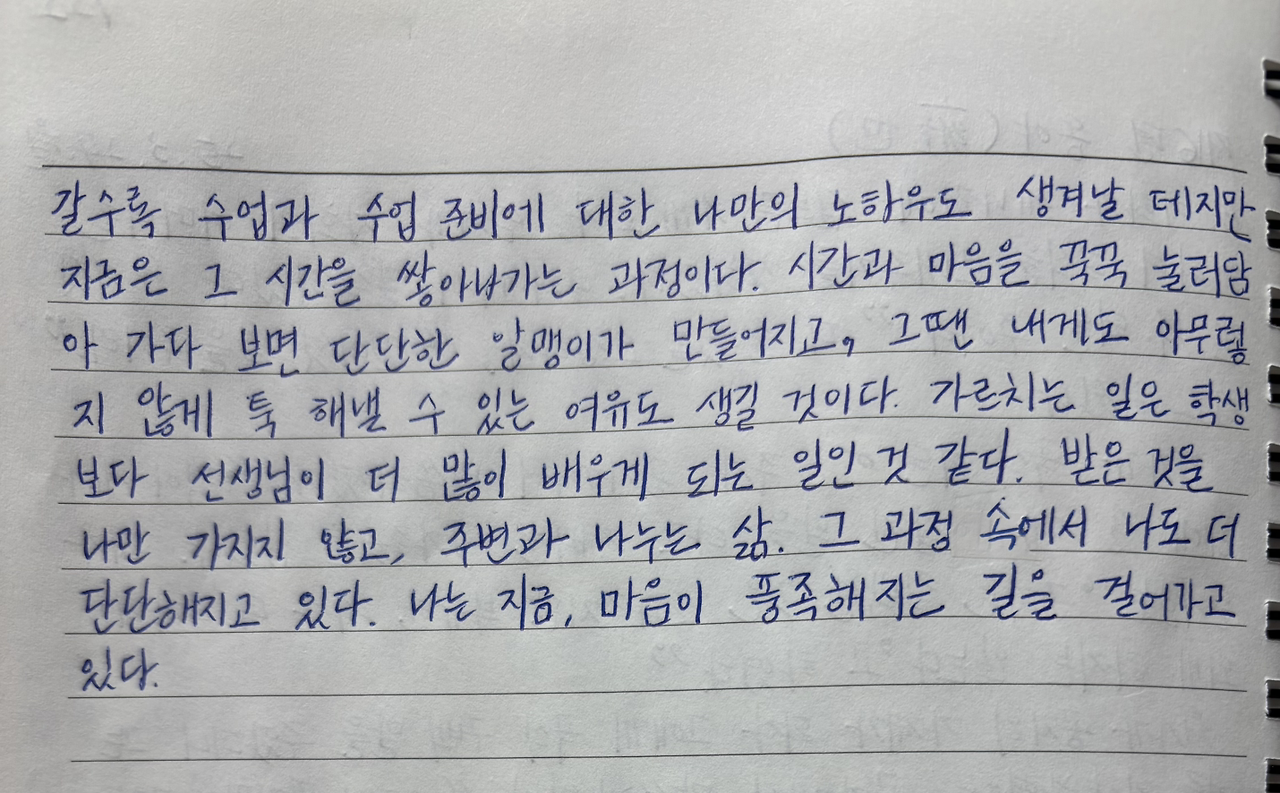 갈수록 수업과 수업 준비에 대한 나만의 노하우도 생겨날 테지만
지금은 그 시간을 쌓아나가는 과정이다. 시간과 마음을 꾹꾹 눌러담
아 가다 보면 단단한 알맹이가 만들어지고, 그땐 내게도 아무렇
지 않게 툭 해낼 수 있는 여유도 생길 것이다. 가르치는 일은 학생
보다 선생님이 더 많이 배우게 되는 일인 것 같다. 받은 것을
나만 가지지 않고, 주변과 나누는 삶. 그 과정 속에서 나도 더
단단해지고 있다. 나는 지금, 마음이 풍족해지는 길을 걸어가고
있다.